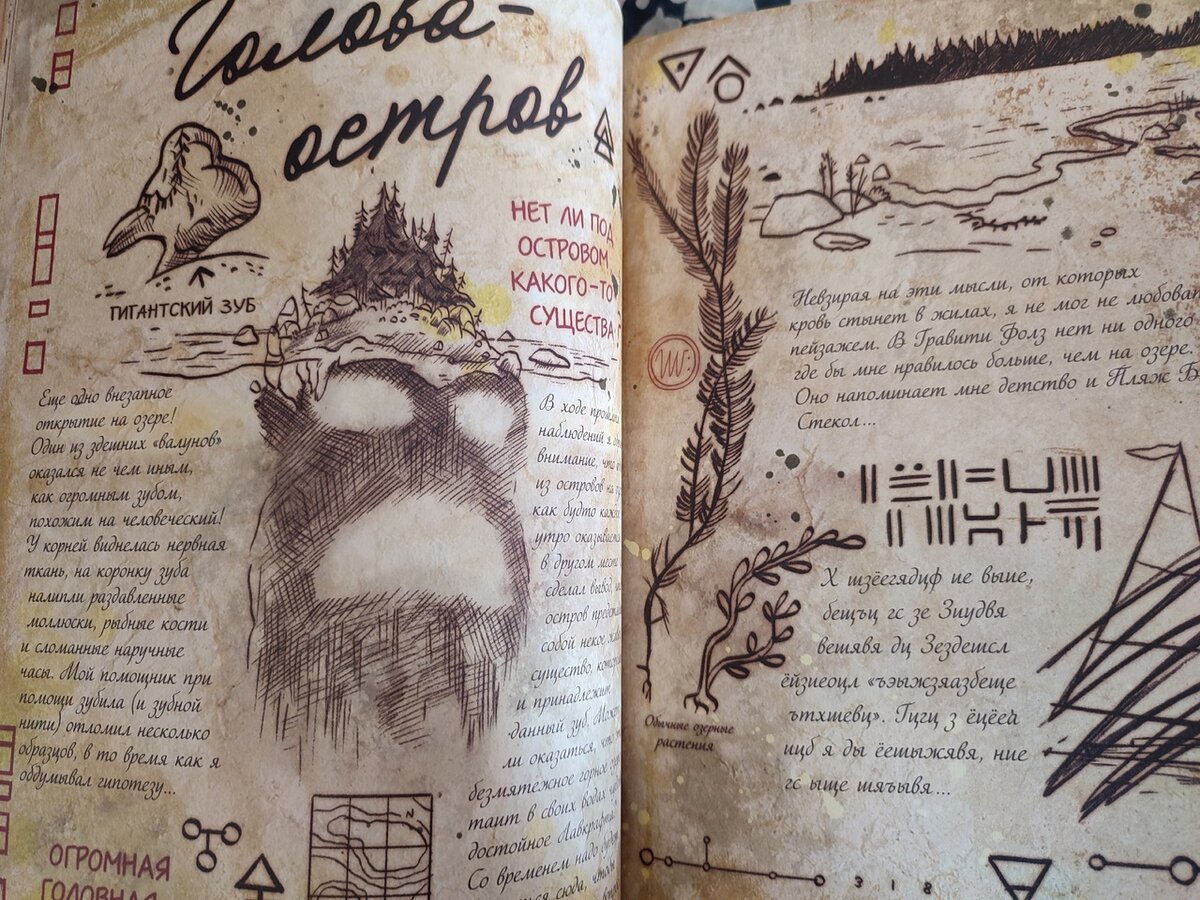 Голова-
остров
ГИГАНТСКИЙ ЗУБ
НЕТ ЛИ ПОД
ОСТРОВОМ
КАКОГО-ТО
СУЩЕСТВА
Еще одно внезапное
открытие на озере!
Один из здешних «валунов»
оказался не чем иным,
как огромным зубом,
похожим на человеческий!
У корней виднелась нервная
ткань, на коронку зуба
налипли раздавленные
моллюски, рыбные кости
и сломанные наручные
часы. Мой помощник при
помощи зубила (и зубной
нити) отломил несколько
образцов, в то время как я
обдумывал гипотезу...
ОГРОМНАЯ
ГОЛОВНАЯ
В ходе
наблюдений я
внимание, что
из островов на
как будто
утро
в другом месте
сделал вывод,
остров
собой некое
существо,
и принадлежит
данный зуб.
ли оказаться, что
безмятежное горное
таит в своих водах
достойное Лавкрафта
Со временем надо
сюда, чтобы
N
Невзирая на эти мысли, от которых
кровь стынет в жилах, я не мог не
пейзажем. В Гравити Фолз нет ни одного
где бы мне нравилось больше, чем на озере.
Оно напоминает мне детство и Пляж
Стекол...
Х шзёегядцф ие выие,
бещъц гс зе Зиудвя
вешявя дц Зездешсл
ёйзиеоцл «ъэыжзяазбеще
ътхшевц». Гцгц з ёцёей
ицб я ды ёешыжявя, ние
гс ыще шяъывя...
Обычные озерные
растения
3 1 8